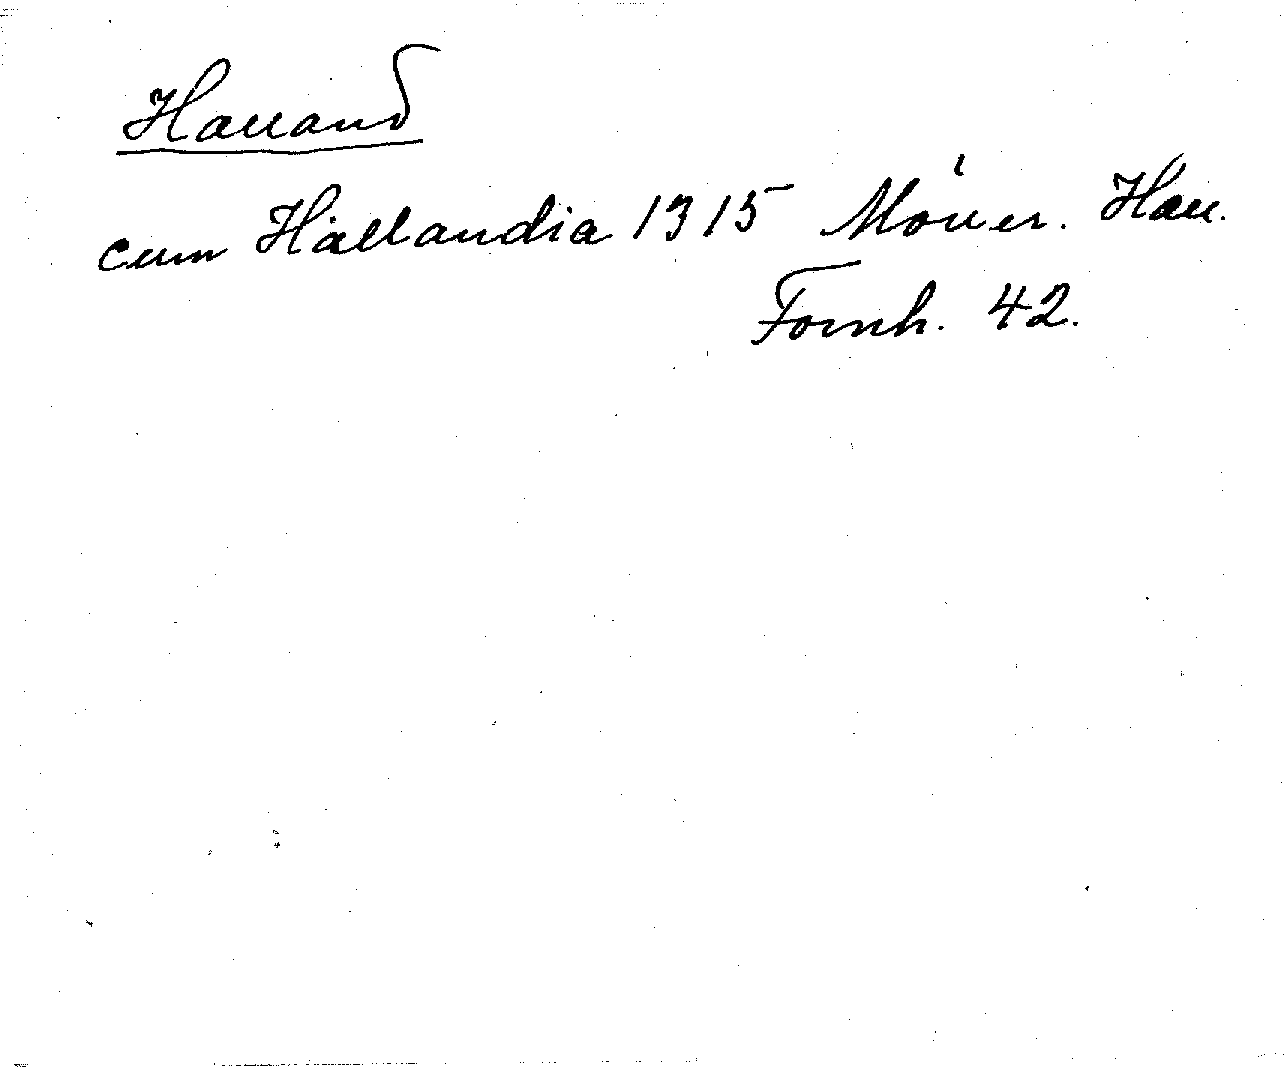 Halland
cum Hallandia 1315 Möller. Hall.
Fornh. 42.